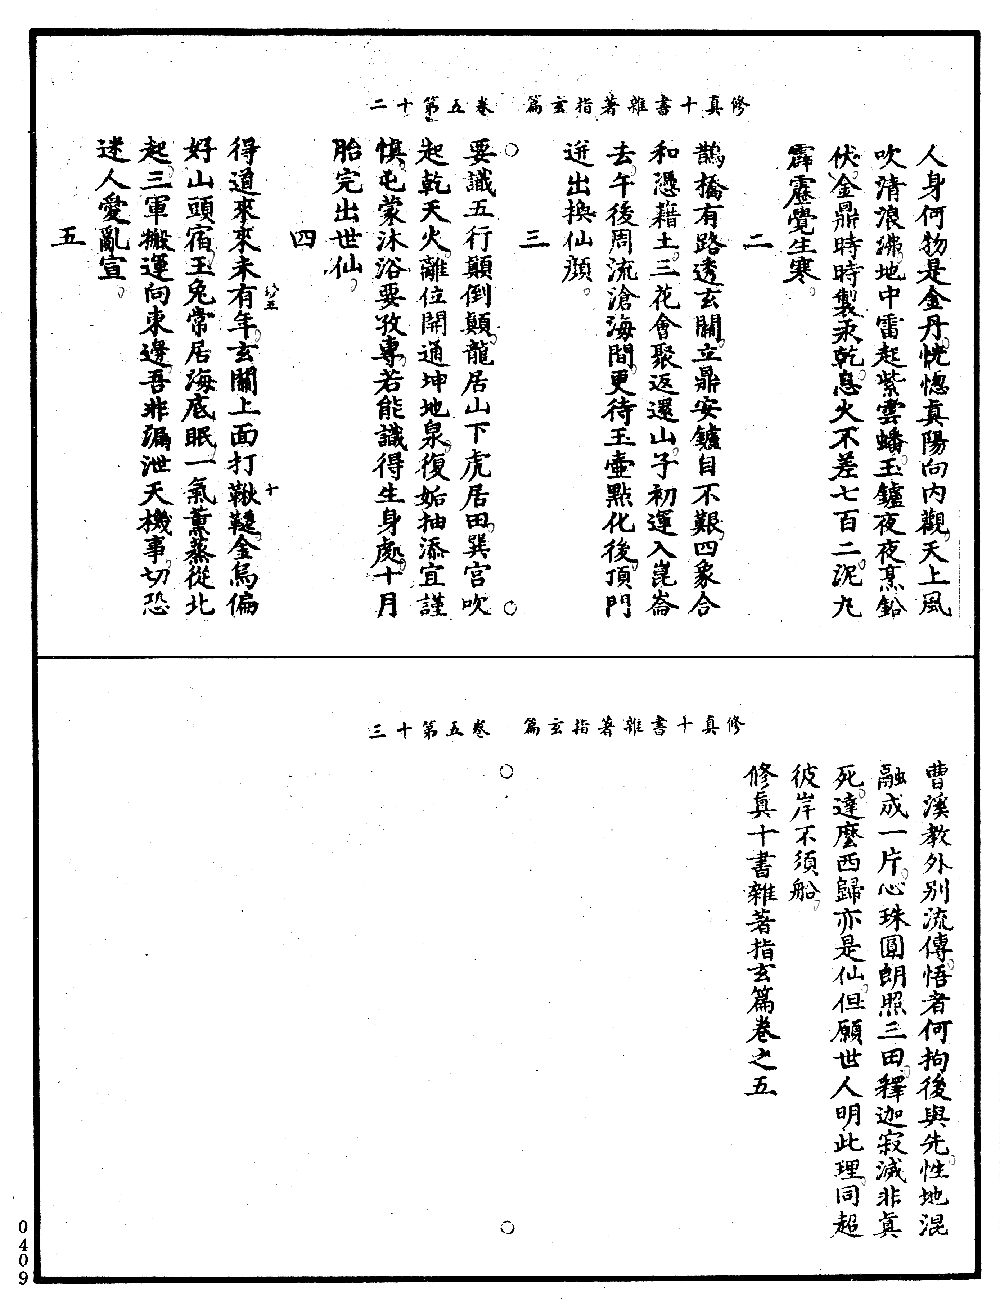 修真十書雜著指玄篇 卷五第十二
人身何物是金丹恍惚真陽向內觀天上風
吹清浪緋地中雷起紫雲蟠玉鑪夜夜烹鉛
伏金鼎時時製汞乾息火不差七百二泥丸
霹靂覺生寒
二
鵲橋有路透玄關立鼎安鑪自不艱四象合
和憑藉土三花會聚返還山子初運入崑崙
去午後周流滄海間更待玉壺點化後頂門
迸出換仙顏
三
要識五行顛倒顛龍居山下虎居田巽宮吹
起乾天火離位開通坤地泉復姤抽添宜謹
慎屯蒙沐浴要孜專若能識得生身處十月
胎完出世仙
四
得道來來未有年玄關上面打鞦韆金烏偏
好山頭宿玉兔常居海底眠一氣薰蒸從北
起三軍搬運向東邊吾非漏泄天機事切恐
迷人愛亂宣
五
修真十書雜著指玄篇 卷五第十三
曹溪教外別流傳悟者何拘後與先性地混
融成一片心珠圓朗照三田釋迦寂滅非真
死達麼西歸亦是仙但願世人明此理同超
彼岸不須船
修真十書雜著指玄篇卷之五
0409